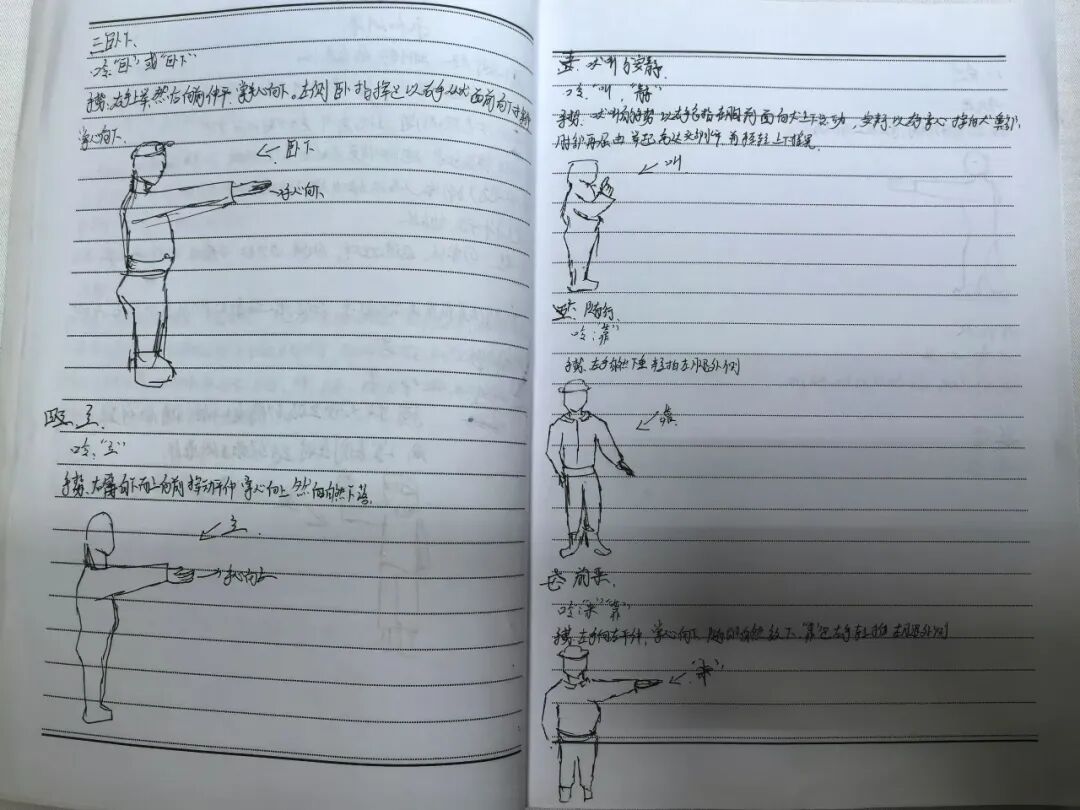 三.卧下.
口令"卧"或"卧下"
手势.右手上举,然后向前伸平,掌心向下。左侧卧指挥是以右手从犬面前向下
掌心向下.
卧下
手心向下.
四.立.
口令"立"
手势.右臂自下而上向前挥动平伸 掌心向上 然后自然下落
立.
手心向上
五.犬叫与安静.
口令"叫","静"
手势.犬叫的手势以右手食指在胸前面向犬上下点动,安静,以右掌心
叫.
六.随行.
口令:"靠"
手势.左手自然下垂轻拍左腿外侧
靠.
七.前来.
口令:"来""靠"
手势.左手向左平伸,掌心向下 随即自然放下."靠"是左手轻拍左腿外侧
"来".